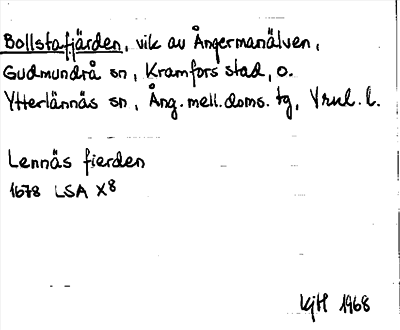 Bollstafjärden, vik av Ångermanälven,
Gudmundrå sn, Kramfors stad, o.
Ytterlännäs sn, Ång. mell. doms. tg, Vrnl. l.
Lennäs fierden
1678 LSA X8
KjH 1968